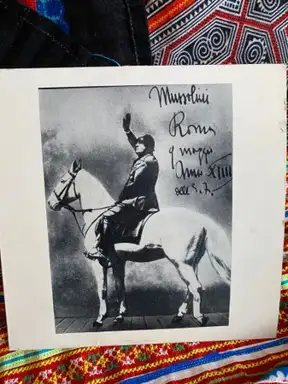 Mussolini
Roma
9 maggio
Anno XIIII
dell' E. F.